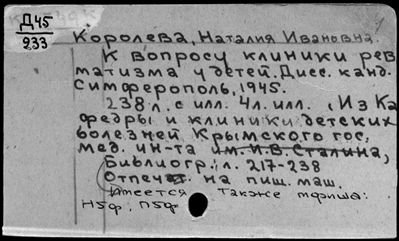 Д45
233
Королева, Наталия Ивановна.
К вопросу клиники рев
матизма у детей. Дисс. канд.
Симферополь, 1945.
238 л. с илл. 4 л. илл. (Из Ка
федры и клиники детских
болезней Крымского гос.
мед. ин-та им. И.В. Сталина,
Библиогр.: л. 217-238
Отпечат. на пиш. маш.
Имеется также мфиша:
Н5ф, П5ф